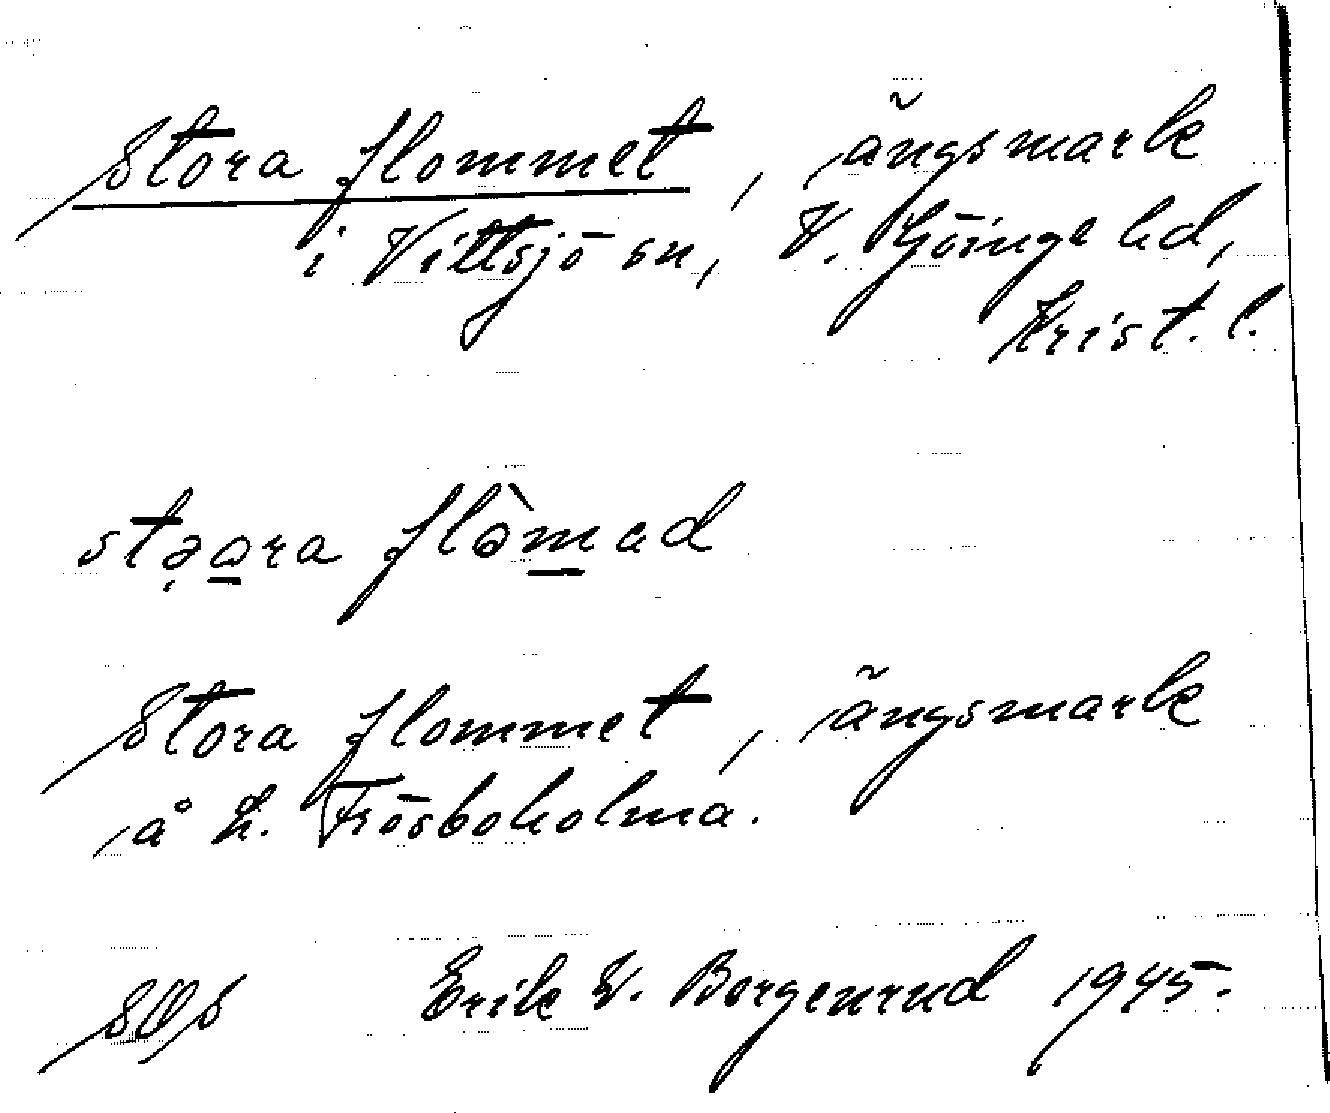 Stora flommet, ängsmark
i Vittsjö sn, V. Göinge hd,
Krist. l.
Stora flommet, ängsmark
å L. Frösboholma.
SOS Erik W. Borgenrud 1945.